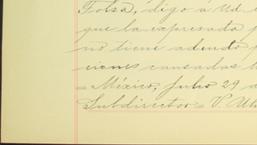 Tolsa, digo á Ud
que la expresada p
no tiene adeudo p
ciones causadas
- México, Julio 29
Subdirector = V.